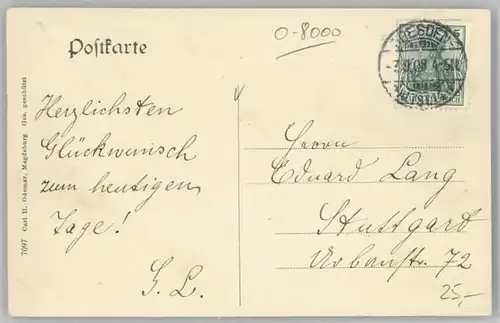 Postkarte
0-8000
DRESDEN
7097 Carl H. Odemar, Magdeburg Ges. geschützt
Herzlichsten
Glückwunsch
zum heutigen
Tage!
G. L.
Herrn
Eduard Lang
Stuttgart
Urbanstr. 72
25,-